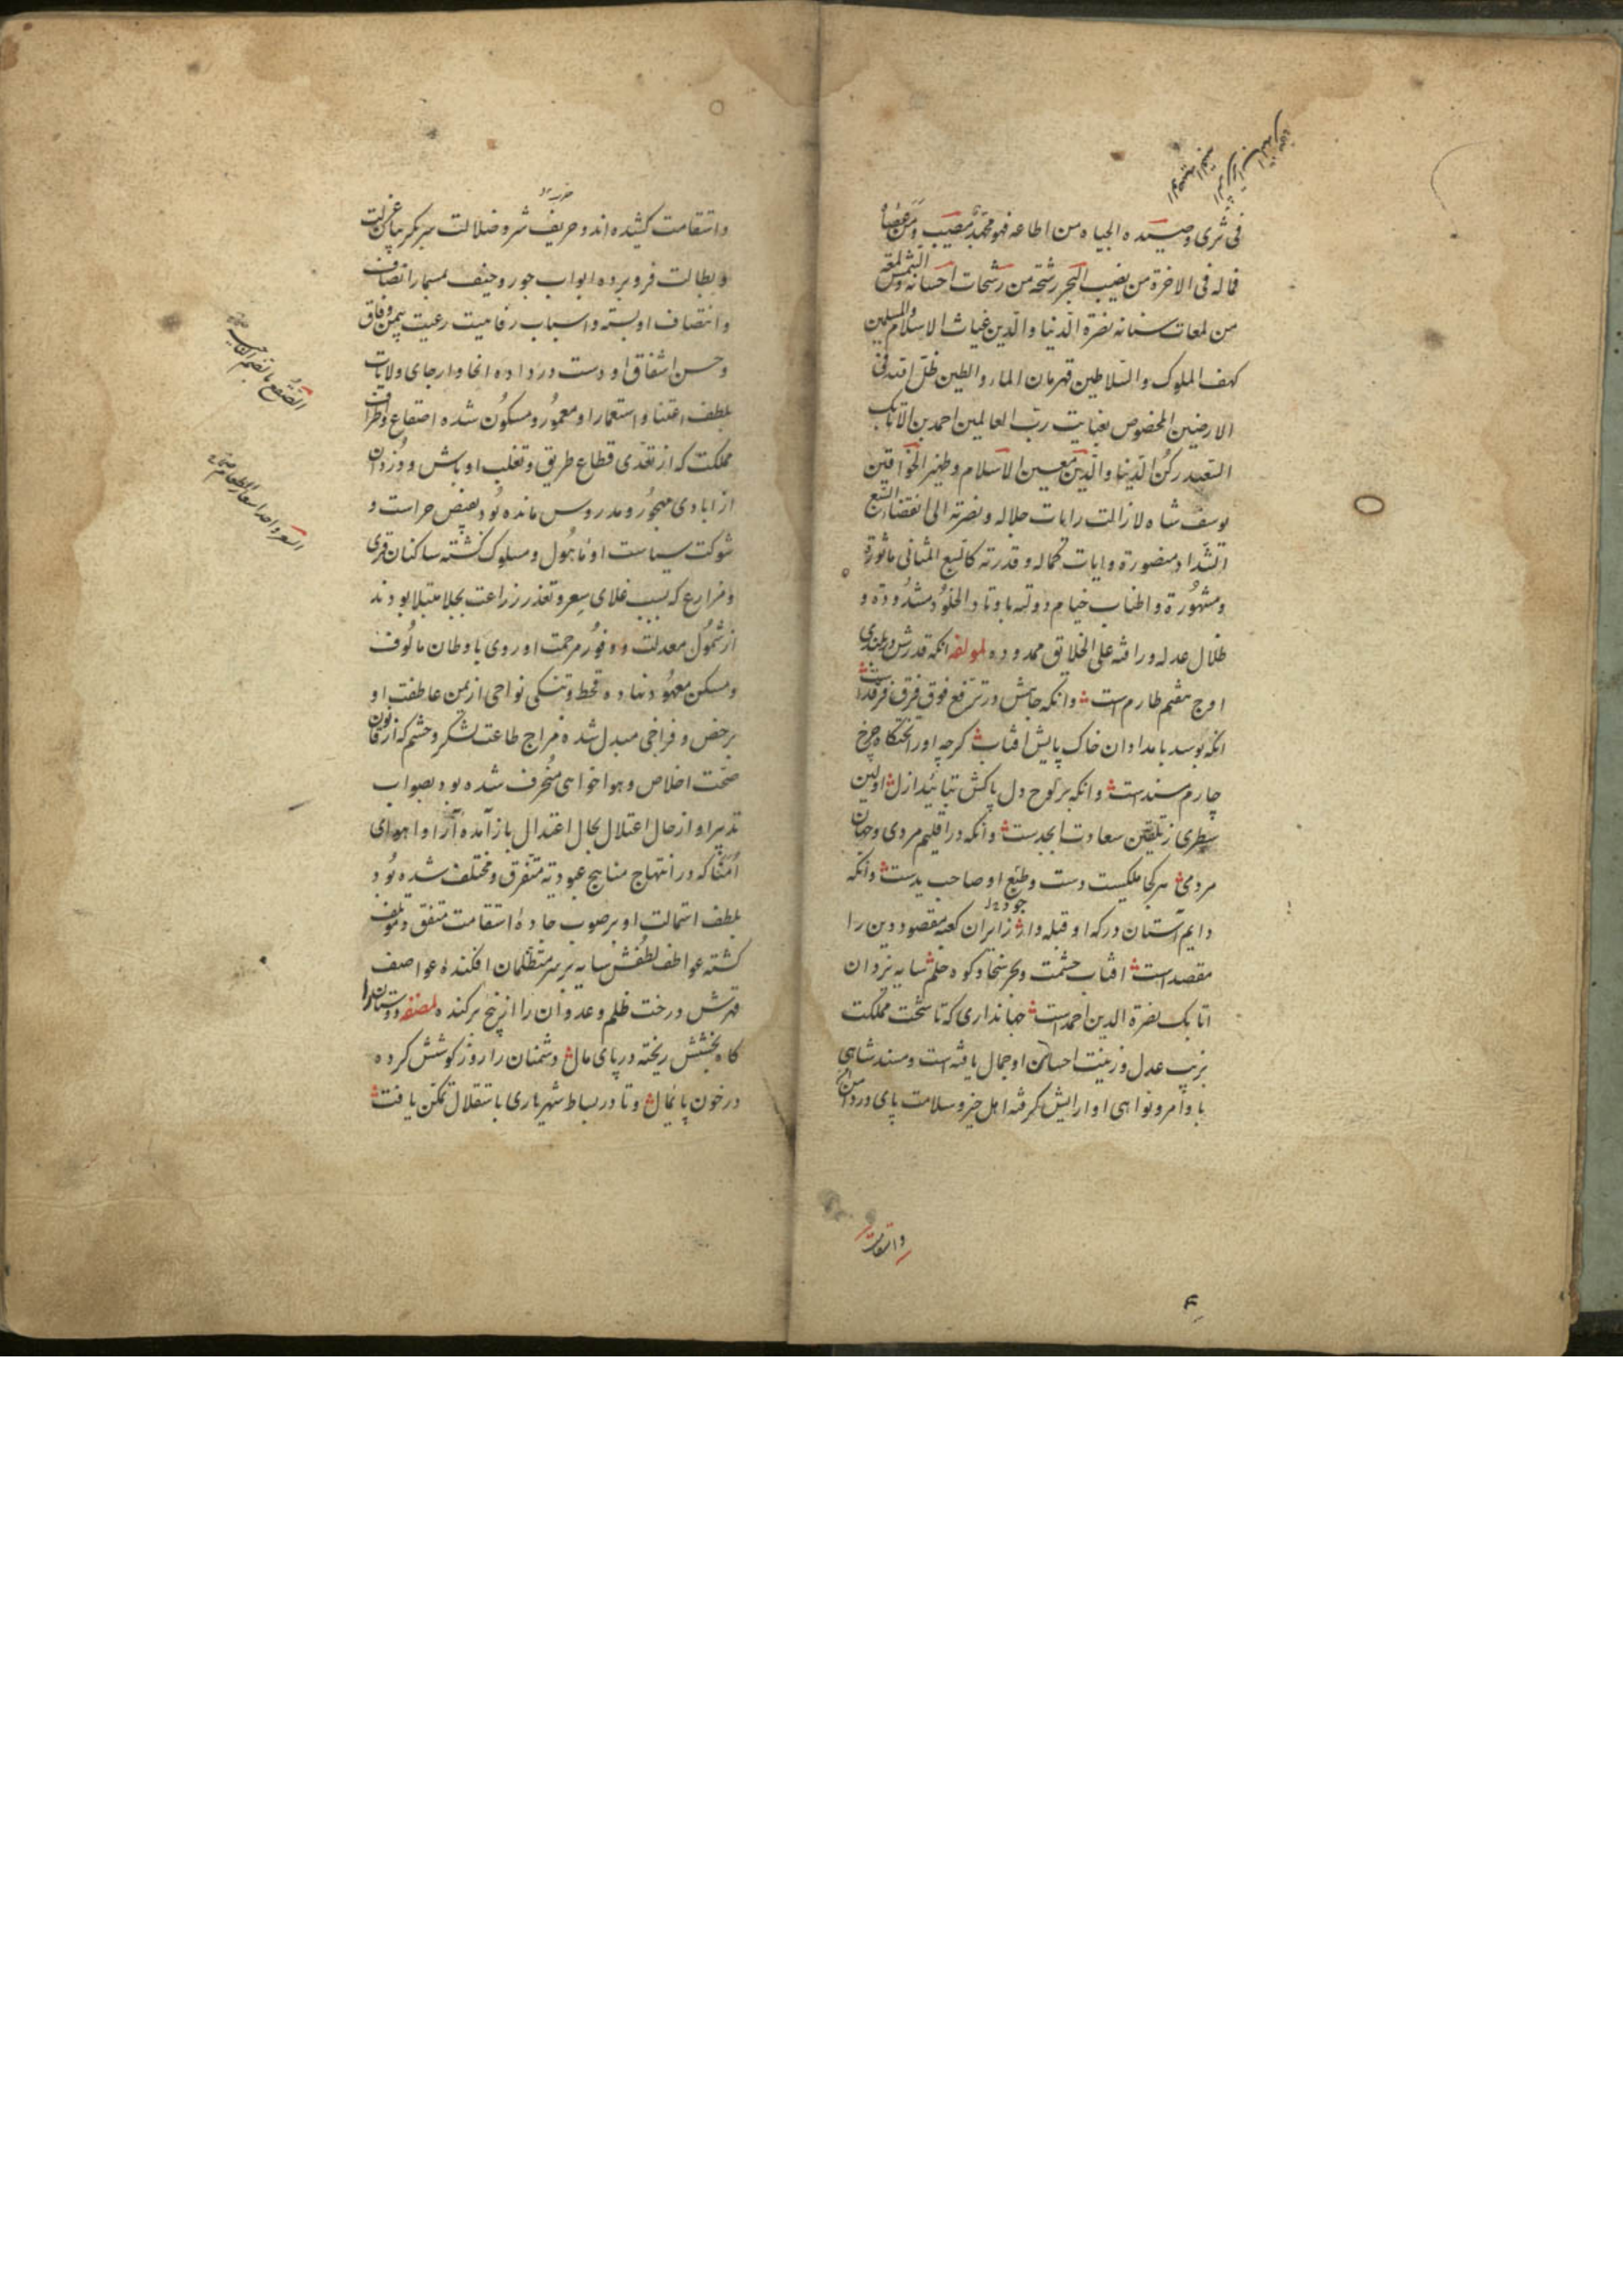 فی ثری وصیده الجباه من اطاعه فهو محمد مصیب و من عصاه
فما له فی الاخرة من نصیب البحر رشحة من رشحات احسانه والشمس لمعة
من لمعات سنانه نصرة الدنیا والدین غیاث الاسلام والمسلمین
کهف الملوک والسلاطین قهرمان الماء والطین ظل الله فی
الارضین المخصوص بعنایت رب العالمین احمد بن الاتابک
السعید رکن الدنیا والدین معین الاسلام وظهیر الخواقین
یوسف شاه لازالت رایات جلاله و نصرته الی انقضا السبع
الشداد منصورة و ایات کماله و قدرته کالسبع المثانی ماثورة
و مشهورة و اطناب خیام دولته باوتاد الخلود مشدودة و
ظلال عدله و رافته علی الخلایق ممدوده لمولفه انکه قدرش در بلندی
اوج هفتم طارم است وانکه جاهش در ترفع فوق فرق فرقدست
انکه بوسد بامدادان خاک پایش افتاب کرچه اورا تختکاه چرخ
چارم مسندست وانکه بر لوح دل پاکش بتائید ازل اولین
سطری ز تلقین سعادت ابجدست وانکه در اقلیم مردی و جهان
مردمی هر کجا ملکیست دست و طبع او صاحب یدست وانکه
دایم آستان درکه او قبله وار زایران کعبه مقصود دین را
جود
مقصدست افتاب حشمت و بحر سخا و کوه حلم سایه یزدان
اتابک نصرة الدین احمدست جهانداری که تا تخت مملکت
بزیب عدل و زینت احسان او جمال یافته است و مسند شاهی
باوامر و نواهی او ارایش کرفته اهل خیر و سلامت پای در دامن
واستقامت
واستقامت کشیده اند و حریف شر و ضلالت سر بکریبان عزلت
و بطالت فرو برده ابواب جور و حیف بمسمار انصاف
و انتصاف او بسته و اسباب رفاهیت رعیت بیمن وفاق
و حسن اشفاق او دست در داده انحا و ارجای ولایات
بلطف اعتنا و استعمار او معمور و مسکون شده اصقاع و اطراف
مملکت که از تعدی قطاع طریق و تغلب اوباش و دزدان
از ابادی مهجور و مدروس مانده بود بفیض حراست و
شوکت سیاست او ماهول و مسلوک کشته ساکنان قری
و مزارع که بسبب غلای سعر و تعذر زراعت بجلا مبتلا بودند
از شمول معدلت و وفور مرحمت او روی باوطان مالوف
و مسکن معهود نهاده قحط و تنکی نواحی از یمن عاطفت او
برخص و فراخی مبدل شده مزاج طاعت لشکر و حشم که از قانون
صحت اخلاص و هواخواهی منحرف شده بود بصواب
تدبیر او از حال اعتلال بحال اعتدال باز آمده آرا و اهوای
امنا که در انتهاج مناهج عبودیة متفرق و مختلف شده بود
بلطف استمالت او بر صوب جاده استقامت متفق و موتلف
کشته عواطف لطفش سایه بر سر متظلمان افکنده عواصف
قهرش درخت ظلم و عدوان را از بیخ برکنده لمصنفه دوستان را
کاه بخشش ریخته در پای مال دشمنان را روز کوشش کرده
در خون پایمال و تا در بساط شهریاری باستقلال تمکن یافت
الصقع بالضم الناحیة
السعر واحد اسعار الطعام